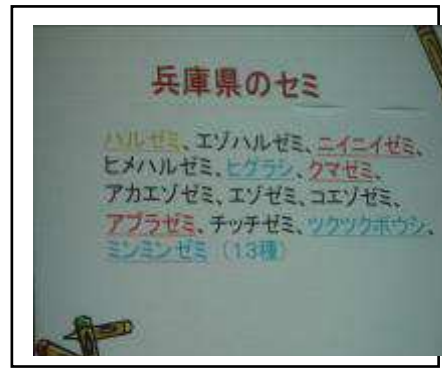 兵庫県のセミ
ハルゼミ、エゾハルゼミ、ニイニイゼミ、
ヒメハルゼミ、ヒグラシ、クマゼミ、
アカエゾゼミ、エゾゼミ、コエゾゼミ、
アブラゼミ、チッチゼミ、ツクツクボウシ、
ミンミンゼミ（13種）